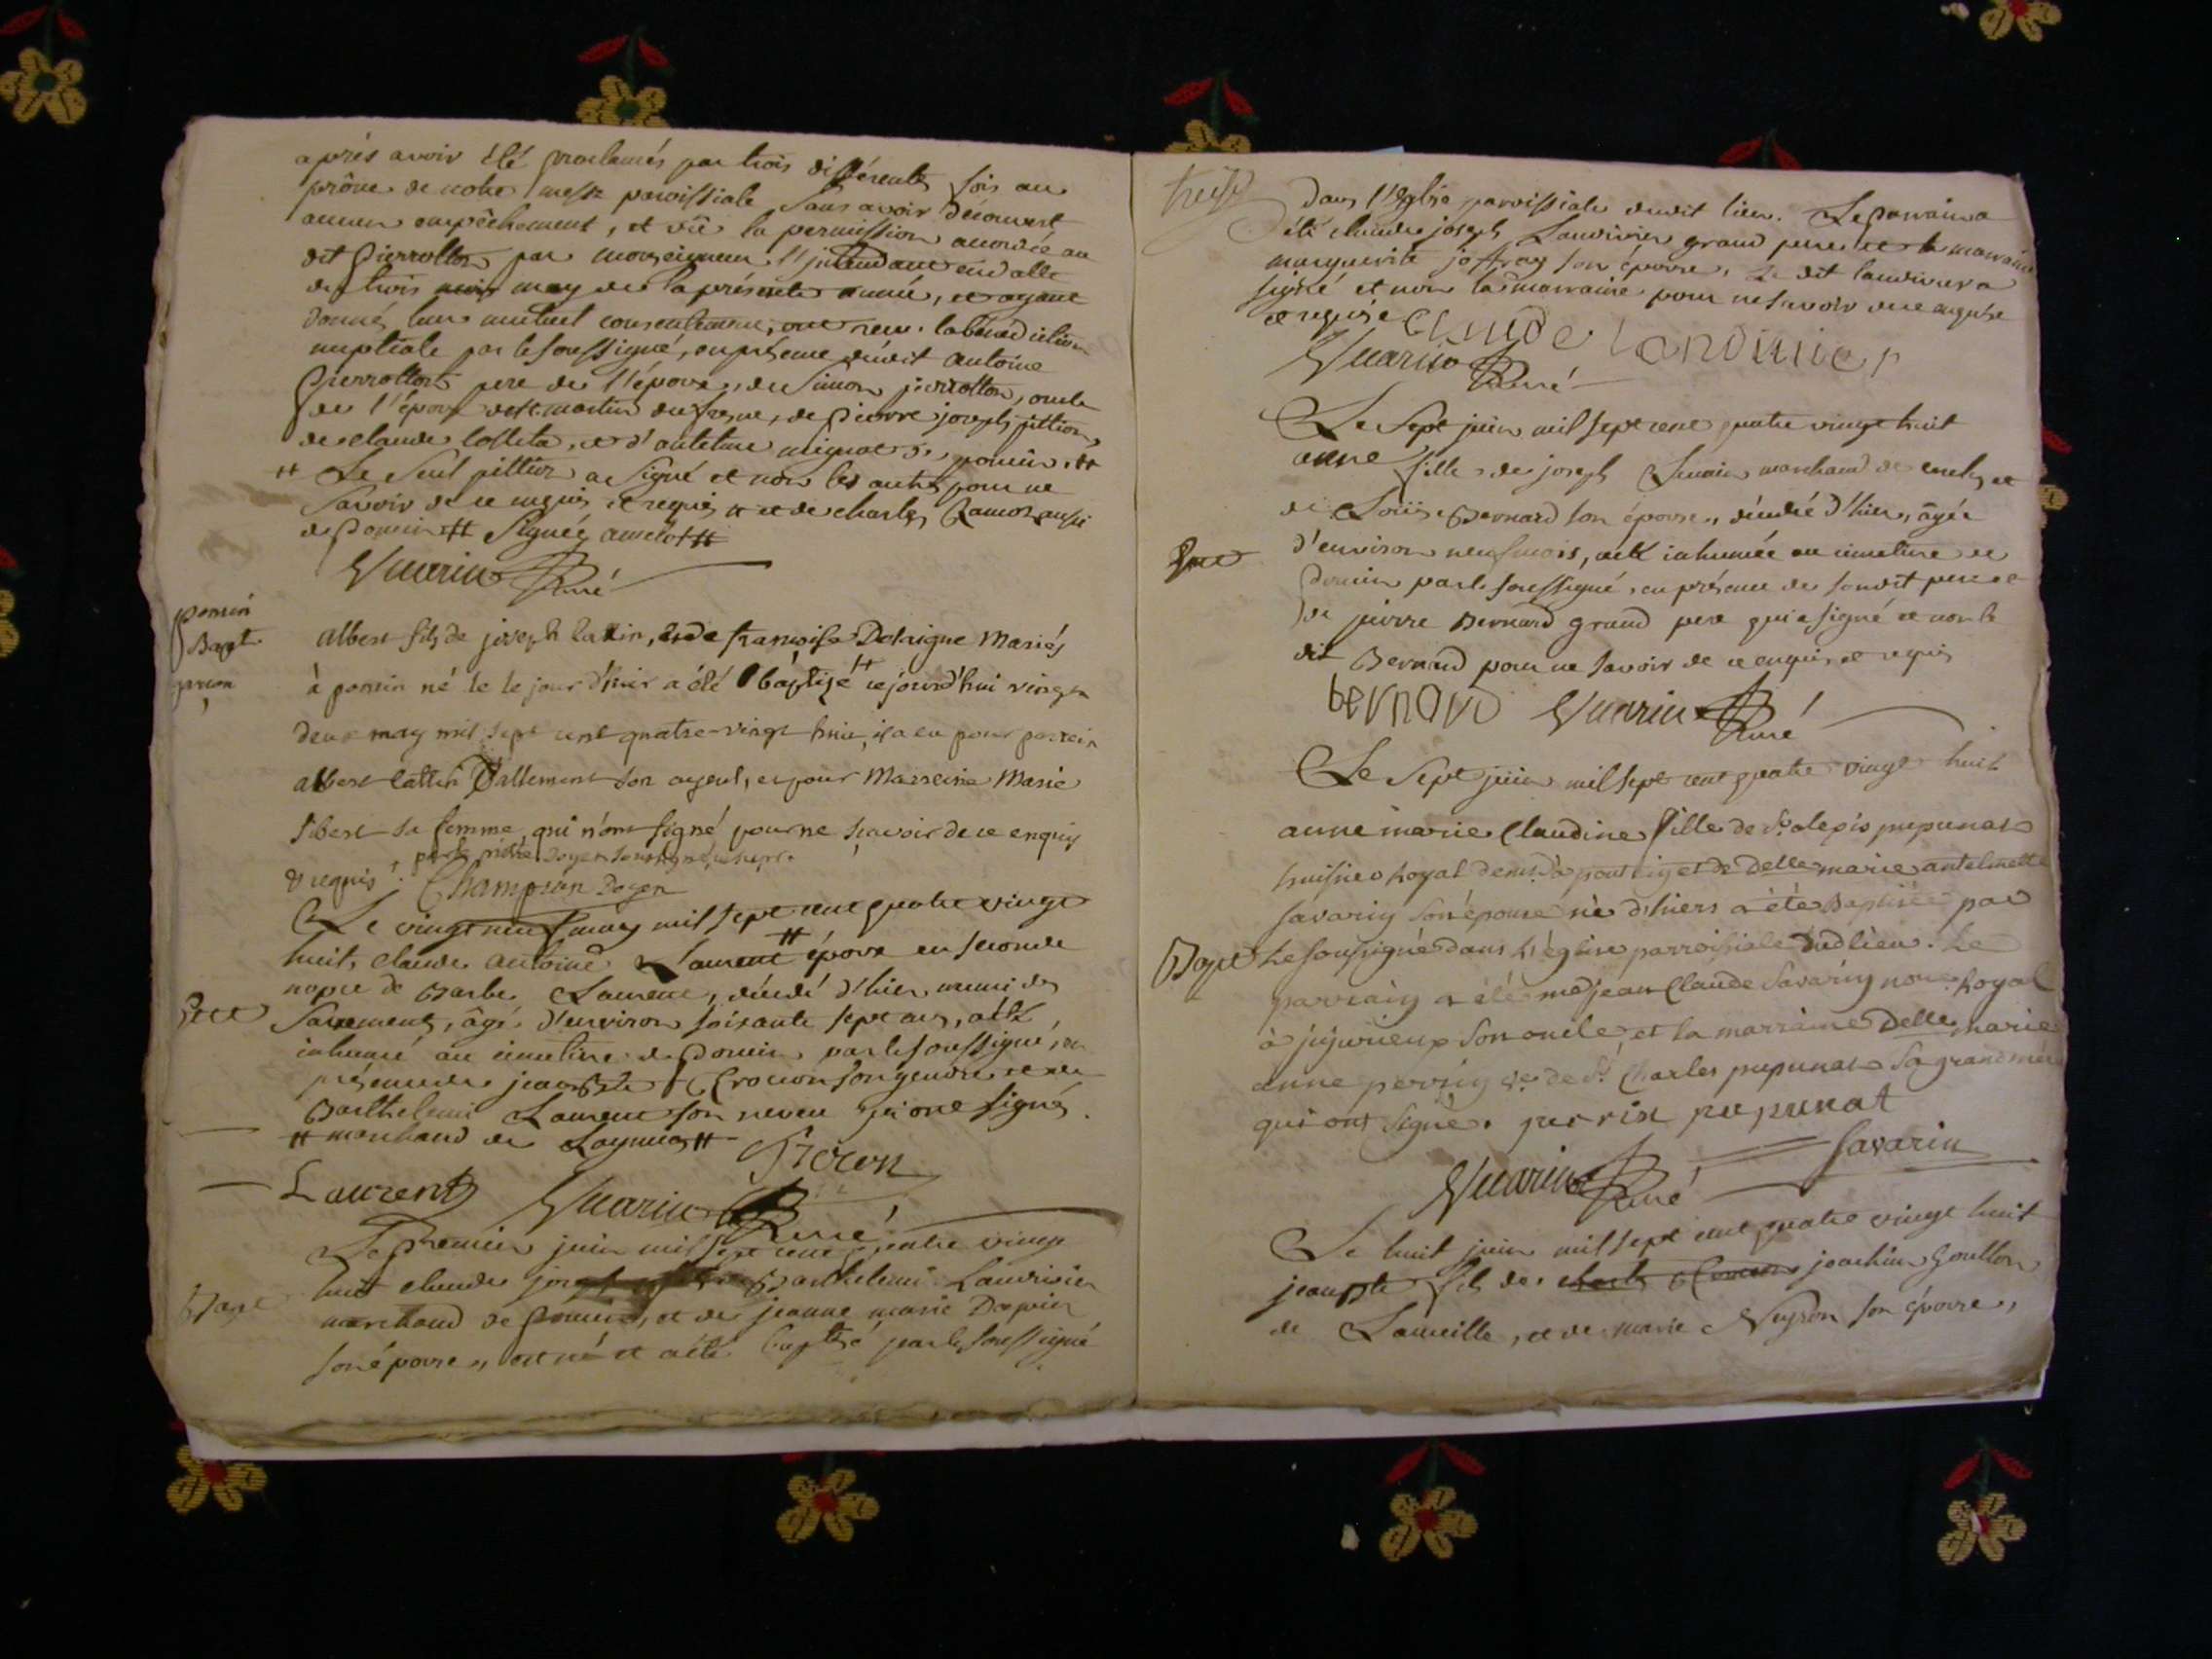 après avoir été proclamés par trois différentes fois au
prône de notre messe paroissiale sans avoir découvert
aucun empêchement, et vû la permission accordée au
dit pierrotton par monseigneur l'intendant en datte
du trois may de la présente année, et ayant
donnés leur mutuel consentement, ont reçu la bénédiction
nuptiale par le soussigné, en présence dudit antoine
pierrotton pere de l'époux, de simon pierrotton, oncle
de l'époux martin dufresne, de pierre joseph pittion,
de claude et d'antelme mignot de poncin, #
# Le seul pittion a signé et non les autres pour ne
savoir de ce enquis et requis # et de charles Ramoz aussi
de Poncin # Signée amelot #
Vuarin Curé
poncin
Bapt.
garcon
albert fils de joseph lattin, et de françoise Delaigue Mariés
à poncin né le le jour d'hier a été baptizé # ce jourd'hui vingt
deux may mil sept cent quatre-vingt huit, il a eu pour parrein
albert lattin son ayeul, et pour Marreine Marie
sibert sa femme, qui n'ont signé pour ne sçavoir de ce enquis
par le
& requis. Champrun Doyen
Le vingt neuf may mil sept cent quatre vingt
huit, claude antoine Laurent # époux en seconde
nopce de Barbe Laurent, décédé d'hier muni des
Sacrements, âgé d'environ soixante sept ans, a été
inhumé au cimetiere de Poncin par le soussigné, en
présence de jean Bte son gendre et de
Barthelemi Laurent son neveu qui ont signés.
# marchand de #
Laurent Vuarin Curé
Le Premier juin mil sept cent quatre vingt
Bapt
huit claude joseph Barthelemi Landivier
marchand de Poncin, et de jeanne marie
son épouse, est né et a été baptisé par le soussigné
treize
dans l'Eglise paroissiale dudit lieu. Le Parrain a
été claude joseph Landivier grand pere et la marraine
marguerite joffray son épouse, Le dit landivier a
signé et non la marraine pour ne savoir de ce enquise
et requise Claude Landivier
Vuarin Curé
Le Sept juin mil sept cent quatre vingt huit
anne fille de joseph marchand de et
de Loüise Bernard son épouse, décédée d'hier, âgée
d'environ neuf mois, a été inhumée au cimetiere de
Poncin par le soussigné, en présence de son dit pere et
de pierre Bernard grand pere qui a signé et non le
dit Bernard pour ne savoir de ce enquis et requis
bernard Vuarin Curé
Le Sept juin mil sept cent quatre vingt huit
anne marie Claudine fille de Sr alexis pupunat
huissier Royal à poncin et de Delle marie antelmette
savarin son épouse née d'hiers a été Baptisée par
Bapt
Le soussigné dans l'église parroissiale dud lieu. Le
parrain a été me jean Claude Savarin nore Royal
à jujurieux son oncle, et la marraine Delle marie
anne perrin ve de Sr Charles pupunat Sa grand mère
qui ont signé. perrin pupunat
Savarin
Vuarin Curé
Le huit juin mil sept cent quatre vingt huit
jean Bte fils de joachim Goutton
de Lameille, et de marie Neyron son épouse,